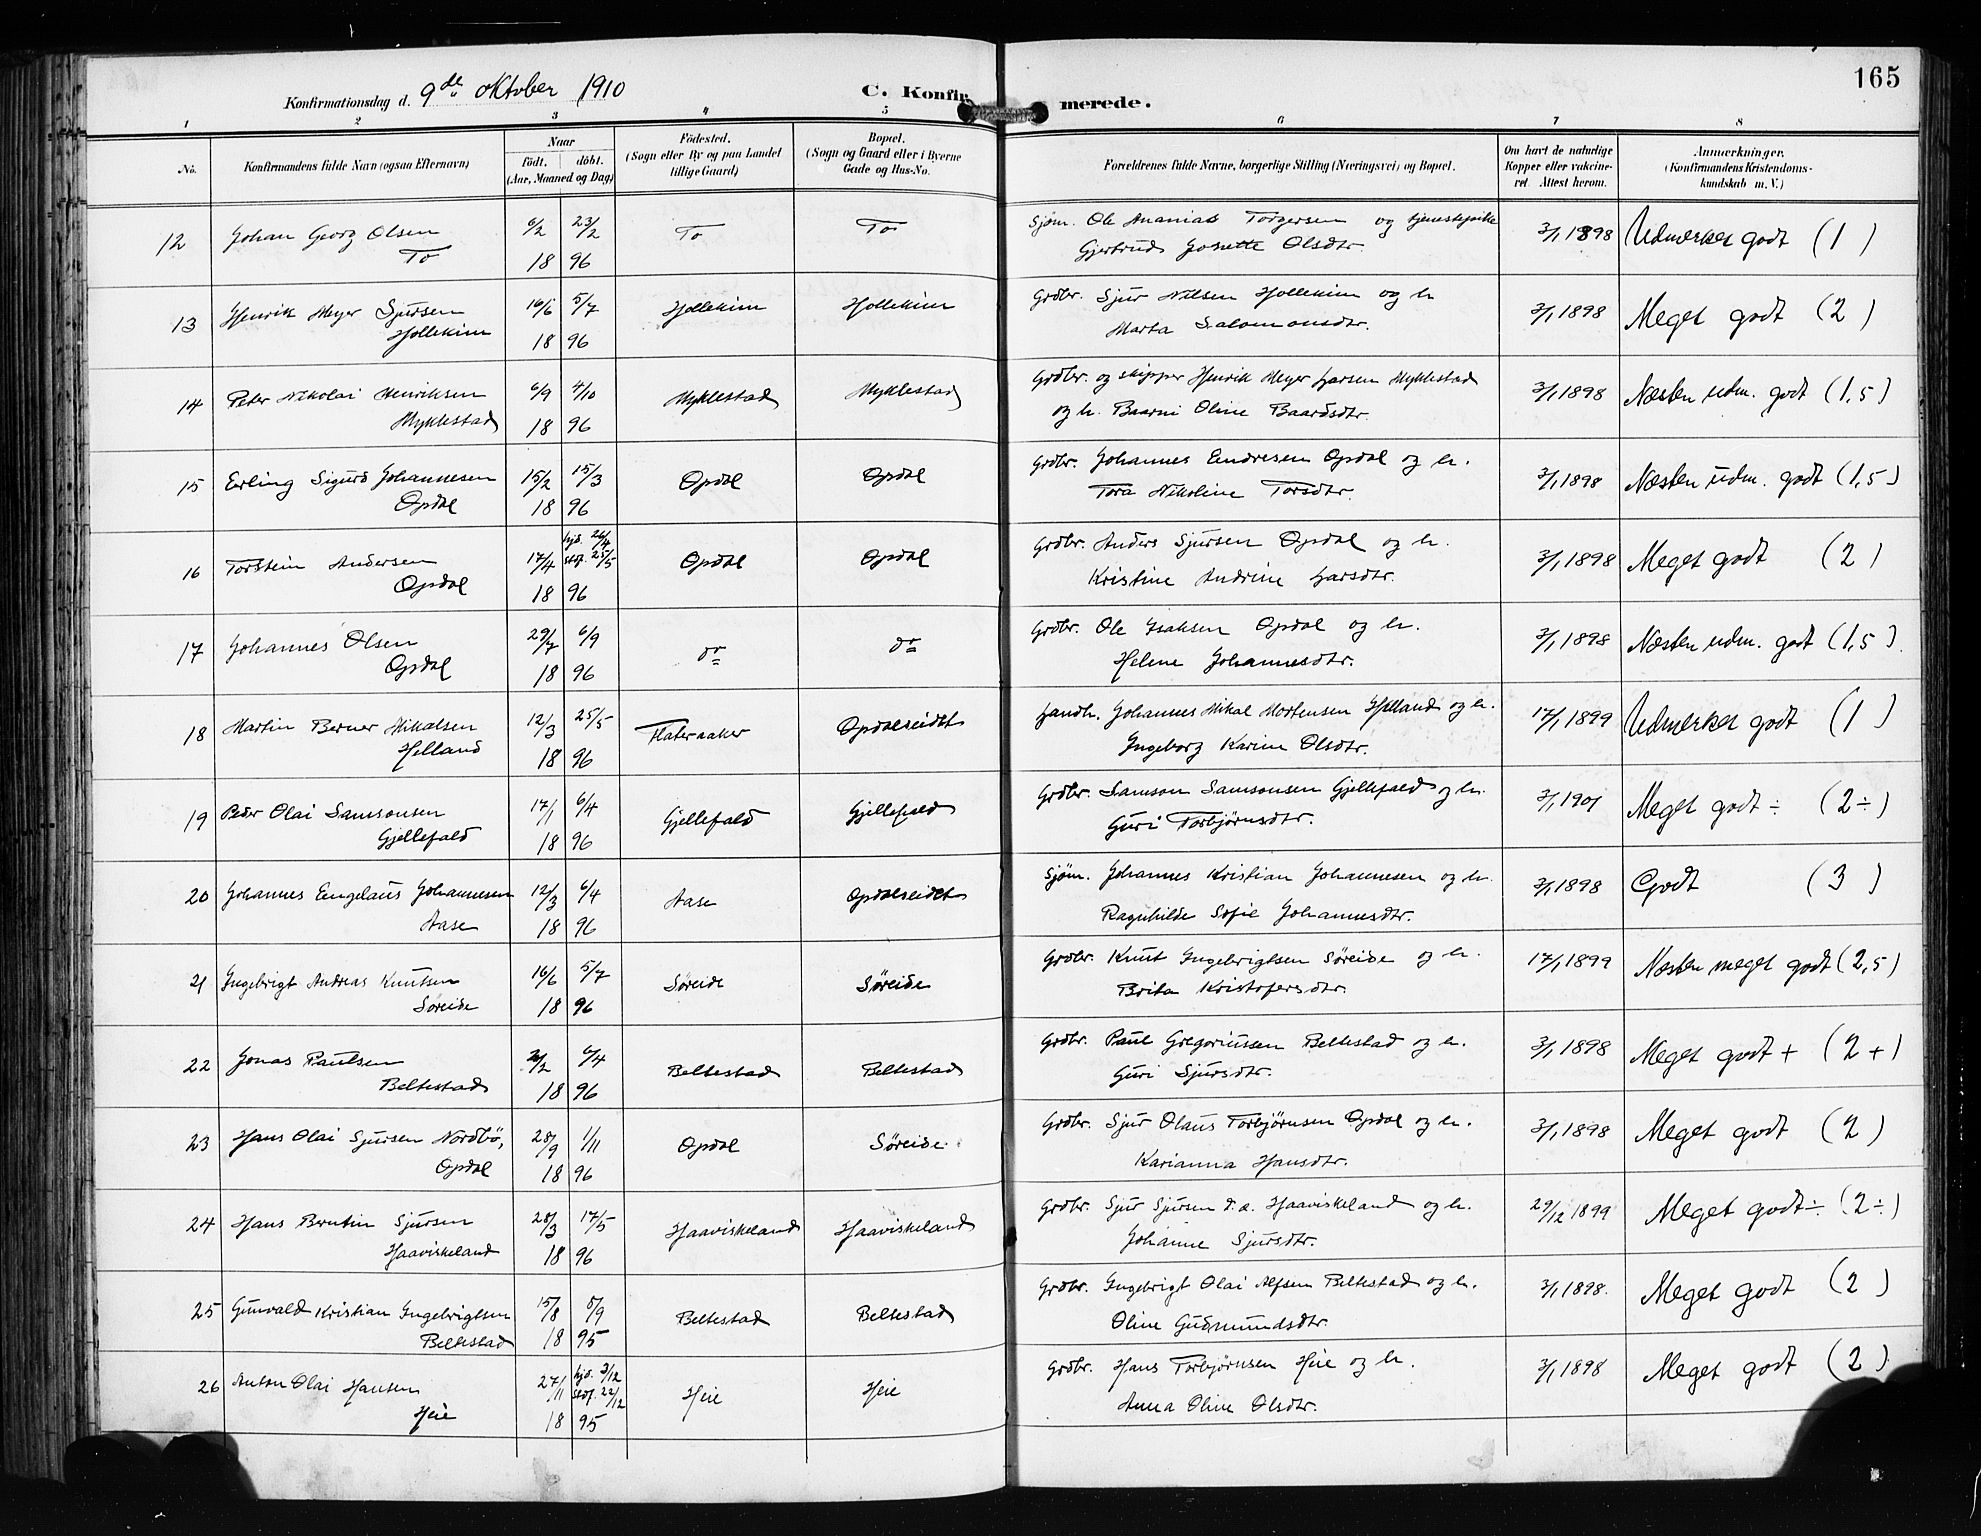 165
Konfirmationsdag d. 9de oktober 1910 C. Konfir merede.
1 2 3 4 5 6 7 8
No. Konfirmandens fulde Navn (ogsaa Efternavn) Naar født, døbt. (Aar, Maaned og Dag) Födested. (Sogn eller By og paa Landet tillige Gaard) Bopæl. (Sogn og Gaard eller i Byerne Gade og Hus-No. Forældrenes fulde Navne, borgerlige Stilling (Næringsvei) og Bopæl. Om havt de naturlige Kopper eller vakcineret. Attest herom. Anmærkninger. (Konfirmandens Kristendomskundskab m. V.)
12 Johan Georg Olsen 6/2 23/2 To To Sjøm. Ole Ananias Torgersen og tjenestepike 3/1 1898 Udmerket godt (1)
To 18 96 Gjertrud Josette Olsdtr.
13 Henrik Meyer Sjursen 16/6 5/7 Hollekim Hollekim Grdbr. Sjur Nilsen Hollekim og h. 3/1 1898 Meget godt (2)
Hollekim 18 96 Marta Salomonsdtr.
14 Peter Nikolai Henriksen 6/9 4/10 Myklestad Myklestad Grdbr. og skipper Henrik Meyer Larsen Myklestad 3/1 1898 Næsten udm. godt (1,5)
Myklestad 18 96 og h. Baarni Oline Baardsdtr.
15 Erling Sigurd Johannesen 15/2 15/3 Opdal Opdal Grdbr. Johannes Endresen Opdal og h. 3/1 1898 Næsten udm. godt (1,5)
Opdal 18 96 Tora Nikoline Torsdtr.
16 Torstein Andersen 17/4 hjd. 26/4 stdf. 25/5 Opdal Opdal Grdbr. Anders Sjursen Opdal og h. 3/1 1898 Meget godt (2)
Opdal 18 96 Kristine Andrine Larsdtr.
17 Johannes Olsen 29/7 6/9 do do Grdbr. Ole Isaksen Opdal og h. 3/1 1898 Næsten udm. godt (1,5)
Opdal 18 96 Helene Johannesdtr.
18 Martin Berner Mikalsen 12/3 25/5 Flateraaker Opdalseidet Landh. Johannes Mikal Mortensen Helland og h. 17/1 1899 Udmerket godt (1)
Helland 18 96 Ingeborg Karine Olsdtr.
19 Peder Olai Samsonsen 17/1 6/4 Gjellefald Gjellefald Grdbr. Samson Samsonsen Gjellefald og h. 3/1 1901 Meget godt ÷ (2÷)
Gjellefald 18 96 Guri Torbjørnsdtr.
20 Johannes Engelaus Johannesen 12/3 6/4 Aase Opdalseidet Sjøm. Johannes Kristian Johannesen og h. 3/1 1898 Godt (3)
Aase 18 96 Ragnhilde Sofie Johannesdtr.
21 Ingebrigt Andreas Knutsen 16/6 5/7 Søreide Søreide Grdbr. Knut Ingebrigtsen Søreide og h. 17/1 1899 Næsten meget godt (2,5)
Søreide 18 96 Brita Kristofersdtr.
22 Jonas Paulsen /2 6/4 Beltestad Beltestad Grdbr. Paul Gregoriussen Beltestad og h. 3/1 1898 Meget godt + (2+)
Beltestad 18 96 Guri Sjursdtr.
23 Hans Olai Sjursen Nordbö, 28/9 1/11 Opdal Søreide Grdbr. Sjur Olaus Torbjørnsen Opdal og h. 3/1 1898 Meget godt (2)
Opdal 18 96 Karianna Hansdtr.
24 Hans Berntin Sjursen 28/3 17/5 Haaviskeland Haaviskeland Grdbr. Sjur Sjursen d.a. Haaviskeland og h. 29/12 1899 Meget godt ÷ (2÷)
Haaviskeland 18 96 Johanne Sjursdtr.
25 Gunvald Kristian Ingebrigtsen 15/8 5/9 Beltestad Beltestad Grdbr. Ingebrigt Olai Alfsen Beltestad og h. 3/1 1898. Meget godt (2)
Beltestad 18 95 Oline Gudmundsdtr.
26 Anton Olai Hansen 27/11 hjd. 3/12 stdf. 22/12 Heie Heie Grdbr. Hans Torbjørnsen Heie og h. 3/1 1898 Meget godt (2)
Heie 18 95 Anna Oline Olsdtr.